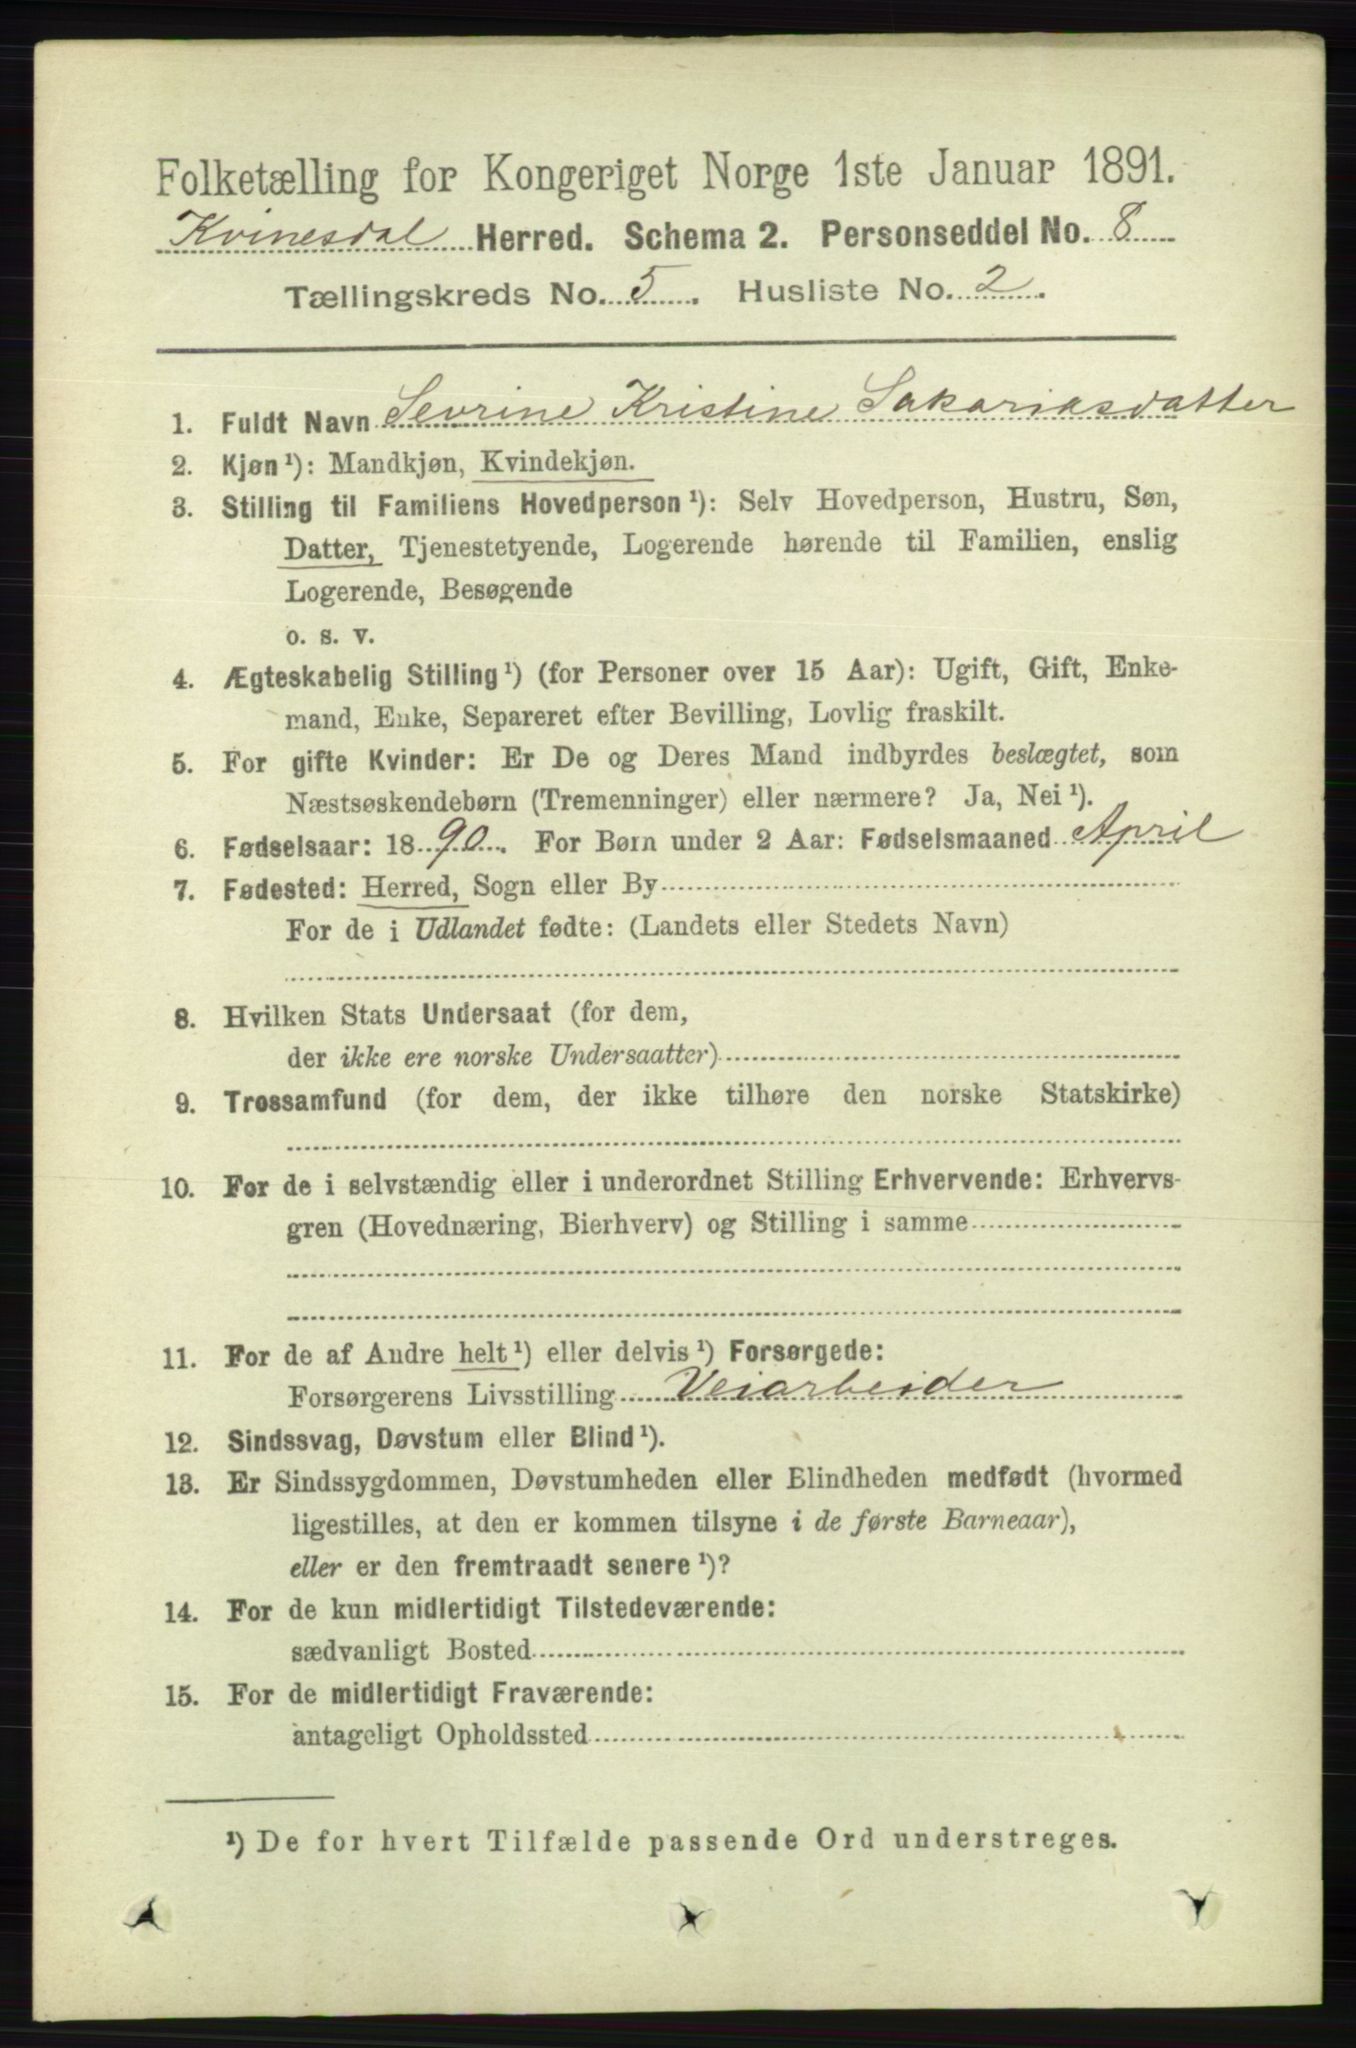 Folketælling for Kongeriget Norge 1ste Januar 1891.
Kvinesdal Herred. Schema 2. Personseddel No. 8
Tællingskreds No. 5. Husliste No. 2.
1. Fuldt Navn Sevrine Kristine Sakariasdatter
2. Kjøn¹): Mandkjøn, Kvindekjøn.
3. Stilling til Familiens Hovedperson¹): Selv Hovedperson, Hustru, Søn,
Datter, Tjenestetyende, Logerende hørende til Familien, enslig
Logerende, Besøgende
o. s. v.
4. Ægteskabelig Stilling¹) (for Personer over 15 Aar): Ugift, Gift, Enke-
mand, Enke, Separeret efter Bevilling, Lovlig fraskilt.
5. For gifte Kvinder: Er De og Deres Mand indbyrdes beslægtet, som
Næstsøskendebørn (Tremenninger) eller nærmere? Ja, Nei¹).
6. Fødselsaar: 1890. For Børn under 2 Aar: Fødselsmaaned April
7. Fødested: Herred, Sogn eller By
For de i Udlandet fødte: (Landets eller Stedets Navn)
8. Hvilken Stats Undersaat (for dem,
der ikke ere norske Undersaatter)
9. Trossamfund (for dem, der ikke tilhøre den norske Statskirke)
10. For de i selvstændig eller i underordnet Stilling Erhvervende: Erhvervs-
gren (Hovednæring, Bierhverv) og Stilling i samme
11. For de af Andre helt¹) eller delvis¹) Forsørgede:
Forsørgerens Livsstilling Veiarbeider
12. Sindssvag, Døvstum eller Blind¹).
13. Er Sindssygdommen, Døvstumheden eller Blindheden medfødt (hvormed
ligestilles, at den er kommen tilsyne i de første Barneaar),
eller er den fremtraadt senere¹)?
14. For de kun midlertidigt Tilstedeværende:
sædvanligt Bosted
15. For de midlertidigt Fraværende:
antageligt Opholdssted
¹) De for hvert Tilfælde passende Ord understreges.